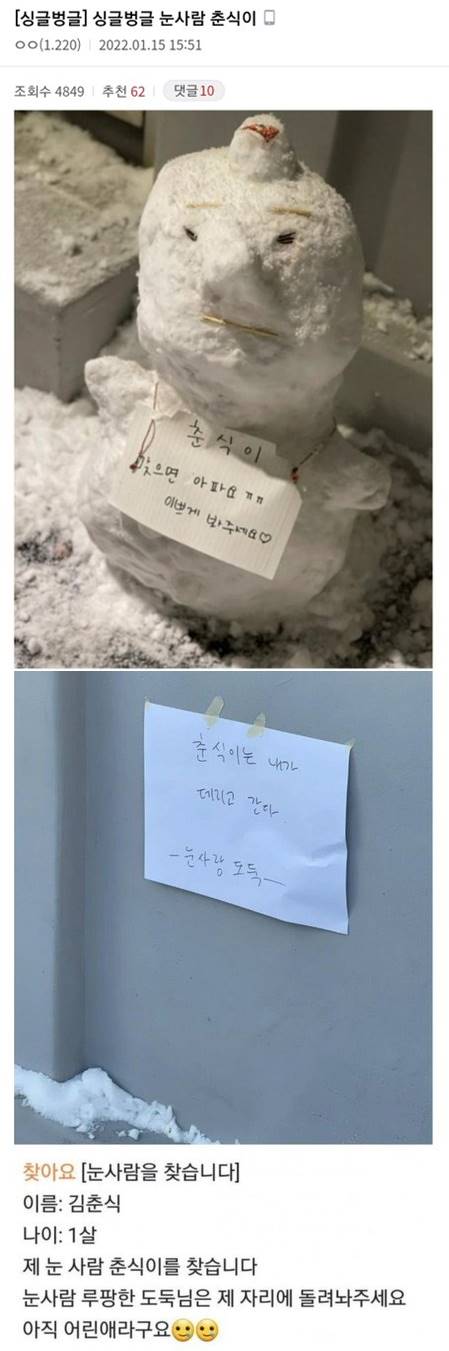 [싱글벙글] 싱글벙글 눈사람 춘식이
ㅇㅇ(1.220) 2022.01.15 15:51
조회수 4849 추천 62 댓글 10
춘식이
맞으면 아파요 ㅠㅠ
이쁘게 봐주세요♡
춘식이는 내가
데리고 간다
-눈사람 도둑-
찾아요 [눈사람을 찾습니다]
이름: 김춘식
나이: 1살
제 눈 사람 춘식이를 찾습니다
눈사람 루팡한 도둑님은 제 자리에 돌려놔주세요
아직 어린애라구요🥲🥲